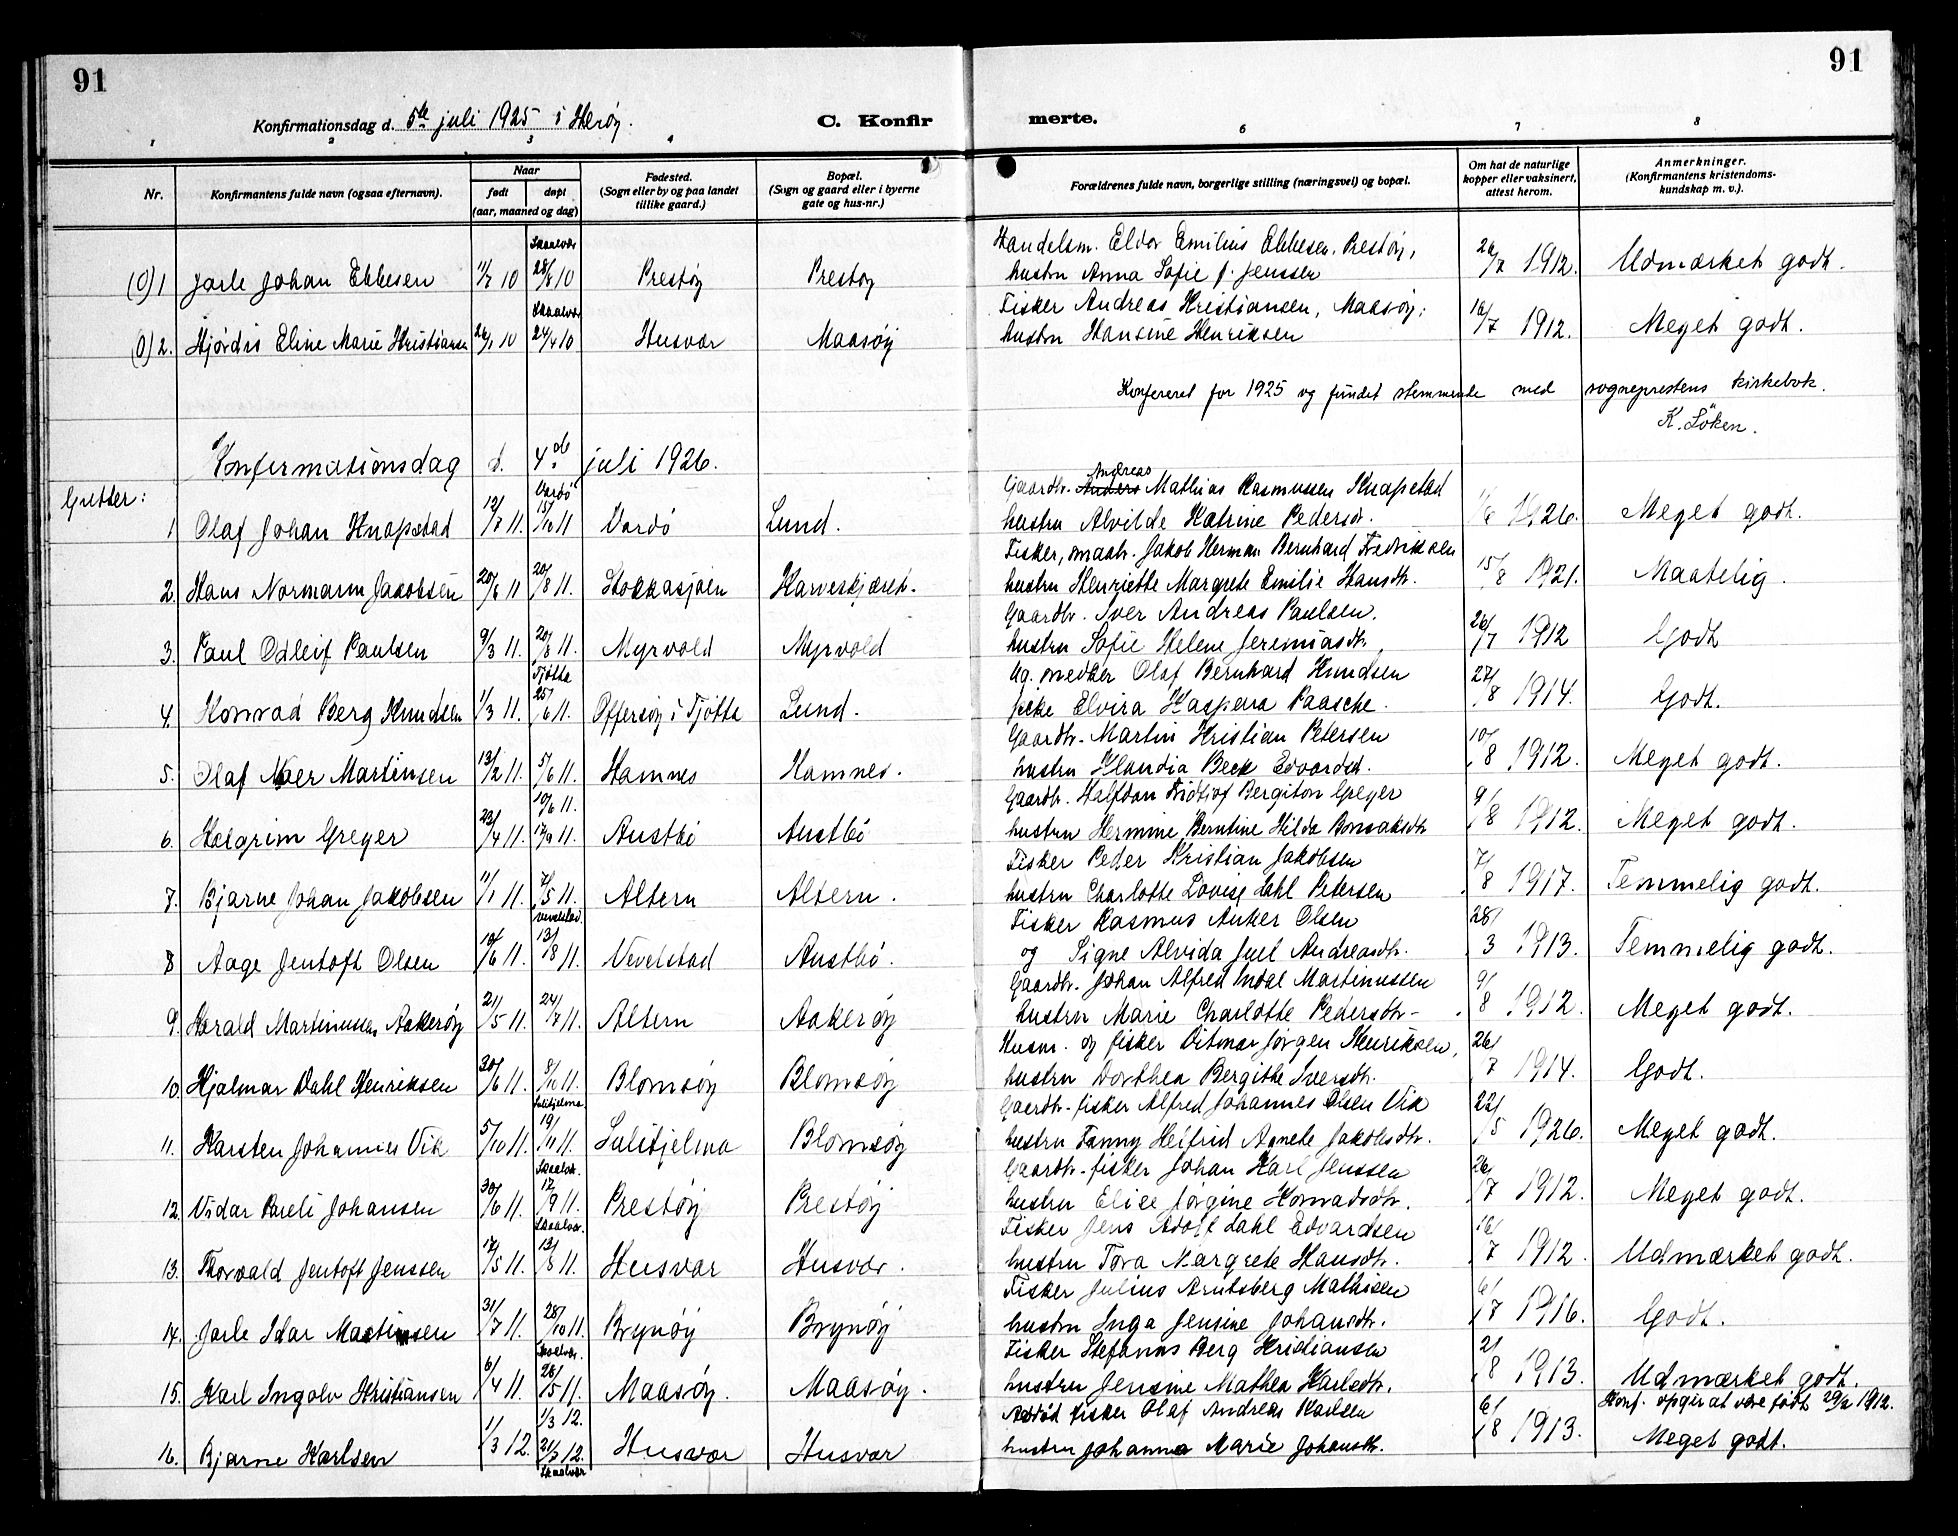 91
91
Konfirmationsdag d. 5te juli 1925 i Herøy.
C. Konfir
merte.
1 2 3 4 6 7 8
Nr.
Konfirmantens fulde navn (ogsaa efternavn).
Naar
født
døpt
(aar, maaned og dag)
Fødested.
(Sogn eller by og paa landet
tillike gaard.)
Bopæl.
(Sogn og gaard eller i byerne
gate og hus-nr.)
Forældrenes fulde navn, borgerlige stilling (næringsvei) og bopæl.
Om hat de naturlige
kopper eller vaksinert,
attest herom.
Anmerkninger.
(Konfirmantens kristendoms-
kundskap m. v.).
Skaalvær
Handelsm. Eldor Emilius Ebbesen, Prestøy,
(0) 1 Jarle Johan Ebbesen 11/7 10 28/8 10 Prestøy Prestøy hustru Anna Sofie f. Jenssen 26/7 1912. Udmærket godt.
Skaalvær
Fisker Andreas Kristiansen, Maasøy,
(0) 2. Hjørdis Eline Marie Kristiansen 26/1 10 24/4 10 Husvær Maasøy hustru Hansine Henriksen 16/7 1912. Meget godt.
Konfereret for 1925 og fundet stemmende med sogneprestens kirkebok.
K. Løken.
Konfirmationsdag d. 4de juli 1926.
Gutter:
Vardø
Gaardbr. Anders Andreas Mathias Rasmussen Knapstad
1 Olaf Johan Knapstad 12/7 11. 15/10 11 Vardø Lund. hustru Alvilde Katrine Pedersdr. 1/6 1926. Meget godt.
Fisker, maatr. Jakob Herman Bernhard Fredriksen
2. Hans Normann Jakobsen 20/6 11 20/8 11. Stokkasjøen Karveskjæret. hustru Henriette Margrete Emilie Hansdr. 15/8 1921. Maatelig.
Gaardbr. Iver Andreas Paulsen.
3. Paul Odleif Paulsen 9/3 11. 20/8 11. Myrvold Myrvold hustru Sofie Helene Jeremiasdr. 26/7 1912 Godt
Tjøtta
Ug. snedker Olaf Bernhard Knudsen
4. Konrad Berg Knudsen 1/3 11. 25/6 11. Offersøy i Tjøtta Lund. pike Elvira Kaspera Paasche. 27/8 1914. Godt.
Gaardbr. Martin Kristian Petersen
5. Olaf Moer Martinsen 13/2 11. 5/6 11. Hamnes Hamnes. hustru Klaudia Beck Edvardsd. 10/8 1912. Meget godt.
10/6 11.
Gaardbr. Halfdan Fridtjof Bergiton Greger
6 Halgrim Greger 22/4 11. 17/9 11. Austbø Austbø hustru Hermine Berntine Hilda Bonsaksdr 9/8 1912. Meget godt.
Fisker Peder Kristian Jakobsen
7. Bjarne Johan Jakobsen 11/1 11. 7/5 11. Altern Altern. hustru Charlotte Lovise Dahl Petersen 7/8 1917. Temmelig godt.
Vevelstad.
Fisker Rasmus Anker Olsen
8 Aage Jentoft Olsen 10/6 11. 13/8 11. Vevelstad Austbø. og Signe Alvida Juel Andreasdr. 28/3 1913. Temmelig godt.
Gaardbr. Johan Alfred Indal Martinussen
9. Harald Martinussen Aakerøy 21/5 11. 24/7 11. Altern Aakerøy hustru Marie Charlotte Pedersdtr- 9/8 1912. Meget godt.
Husm. og fisker Ditmar Jørgen Henriksen,
10. Hjalmar Dahl Henriksen 30/6 11. 8/10 11. Blomsøy Blomsøy hustru Dorthea Bergithe Iversdr. 26/7 1914. Godt.
Sulitjelma
Gaardbr-fisker Alfred Johannes Olsen Vik
11. Karsten Johannes Vik 5/10 11. 19/11 11. Sulitjelma Blomsøy hustru Fanny Heifrid Agnete Jakobsdtr. 22/5 1926. Meget godt.
Skaalvr.
Gaardbr-fisker Johan Karl Jenssen
12. Vidar Pareli Johansen 30/6 11. 17/9 11. Prestøy Prestøy hustru Elise Jørgine Konradsdr. 26/7 1912. Meget godt.
Skaalvær.
Fisker Jens Adolf Dahl Edvardsen
13. Thorvald Jentoft Jenssen 17/5 11. 13/8 11. Husvær Husvær. hustru Tora Margrete Hansdr. 16/7 1912. Udmærket godt.
Fisker Julius Arntsberg Mathisen
14. Jarle Idar Martinsen 31/7 11. 28/10 11. Brynøy Brynøy hustru Inga Jensine Johansdtr. 6/7 1916. Godt.
Skaalvær.
Fisker Stefanus Berg Kristiansen
15. Karl Ingolv Kristiansen 6/4 11. 28/5 11. Maasøy. Maasøy. hustru Jensine Mathea Karlsdr. 2/8 1913. Udmærket godt.
1/3 12.
fisker Olaf Andreas Karlsen
Konf. opgir at være født 29/2 1912.
16. Bjarne Karlsen 1/3 12. 21/7 12. Husvær Husvær hustru Johanna Marie Johansdr. 6/8 1913. Meget godt.
Skaalvær